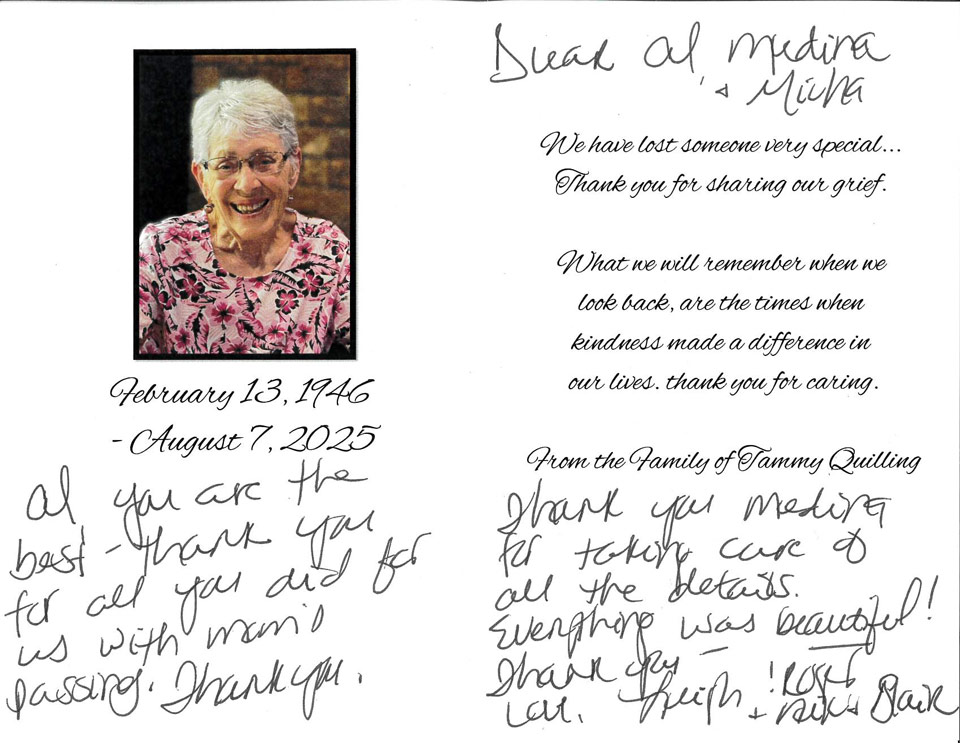 February 13, 1946
- August 7, 2025
Al you are the
best - thank you
for all you did for
us with mom's
passing. Thank you.
Dear Al, Medina
& Micha
We have lost someone very special...
Thank you for sharing our grief.
What we will remember when we
look back, are the times when
kindness made a difference in
our lives. thank you for caring.
From the Family of Tammy Quilling
Thank you Medina
for taking care of
all the details.
Everything was beautiful!
Thank you -
Love, Blair